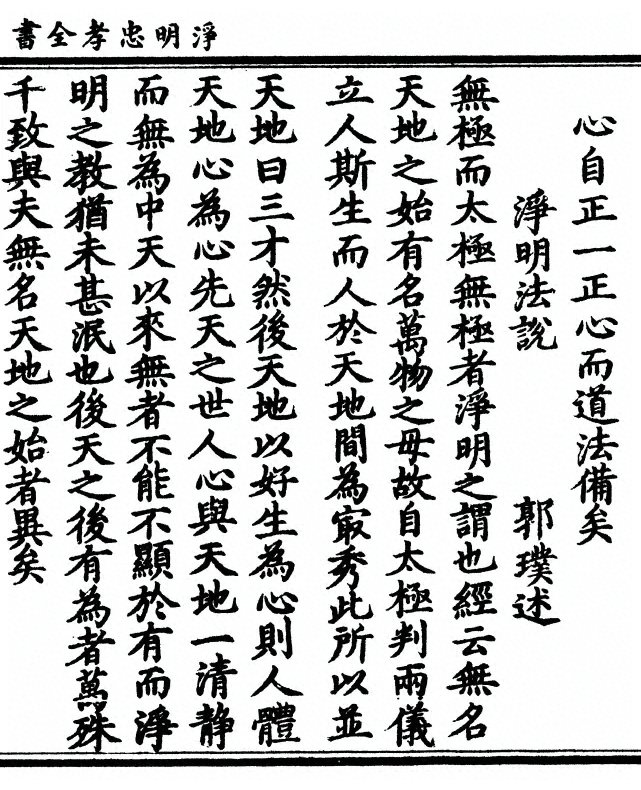 淨明忠孝全書
心自正一正心而道法備矣
淨明法說　郭璞述
無極而太極無極者淨明之謂也經云無名
天地之始有名萬物之母故自太極判兩儀
立人斯生而人於天地間為㝡秀此所以並
天地曰三才然後天地以好生為心則人體
天地心為心先天之世人心與天地一清静
而無為中天以來無者不能不顯於有而淨
明之教猶未甚泯也後天之後有為者萬殊
千致與夫無名天地之始者異矣